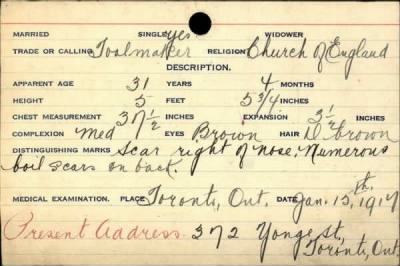 MARRIED SINGLE yes WIDOWER
TRADE OR CALLING Toolmaker RELIGION Church of England
DESCRIPTION.
APPARENT AGE 31 YEARS 4 MONTHS
HEIGHT 5 FEET 5 3/4 INCHES
CHEST MEASUREMENT 37 1/2 INCHES EXPANSION 3 1/2 INCHES
COMPLEXION Med EYES Brown HAIR D. brown
DISTINGUISHING MARKS Scar right of nose; Numerous
boil scars on back.
MEDICAL EXAMINATION. PLACE Toronto, Ont. DATE Jan. 15th, 1917
Present address. 372 Yonge St,
Toronto, Ont.